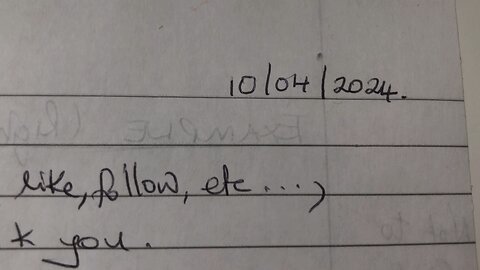 10/04/2024.
like, follow, etc...,
k you.